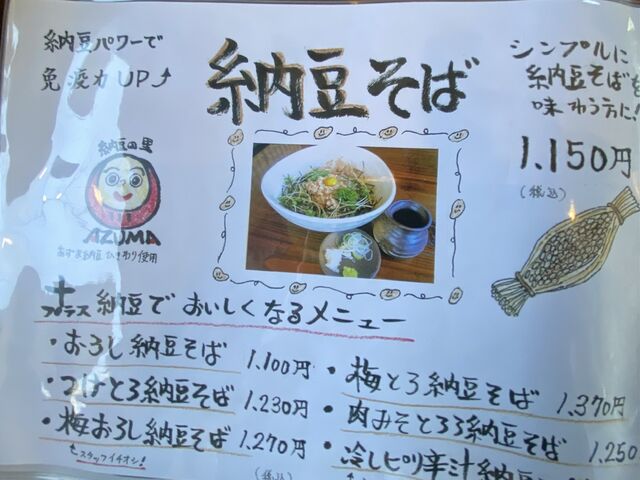 納豆パワーで
免疫力UP
納豆そば
シンプルに
納豆そばを
味わう方に!
1,150円
(税込)
納豆の里
AZUMA
あずま納豆 ひきわり使用
+プラス 納豆で おいしくなるメニュー
・おろし納豆そば 1,100円
・つけとろ納豆そば 1,230円
・梅おろし納豆そば 1,270円
スタッフイチオシ!
(税込)
・梅とろ納豆そば 1,370円
・肉みそとろろ納豆そば 1,250
・冷しピリ辛汁納豆